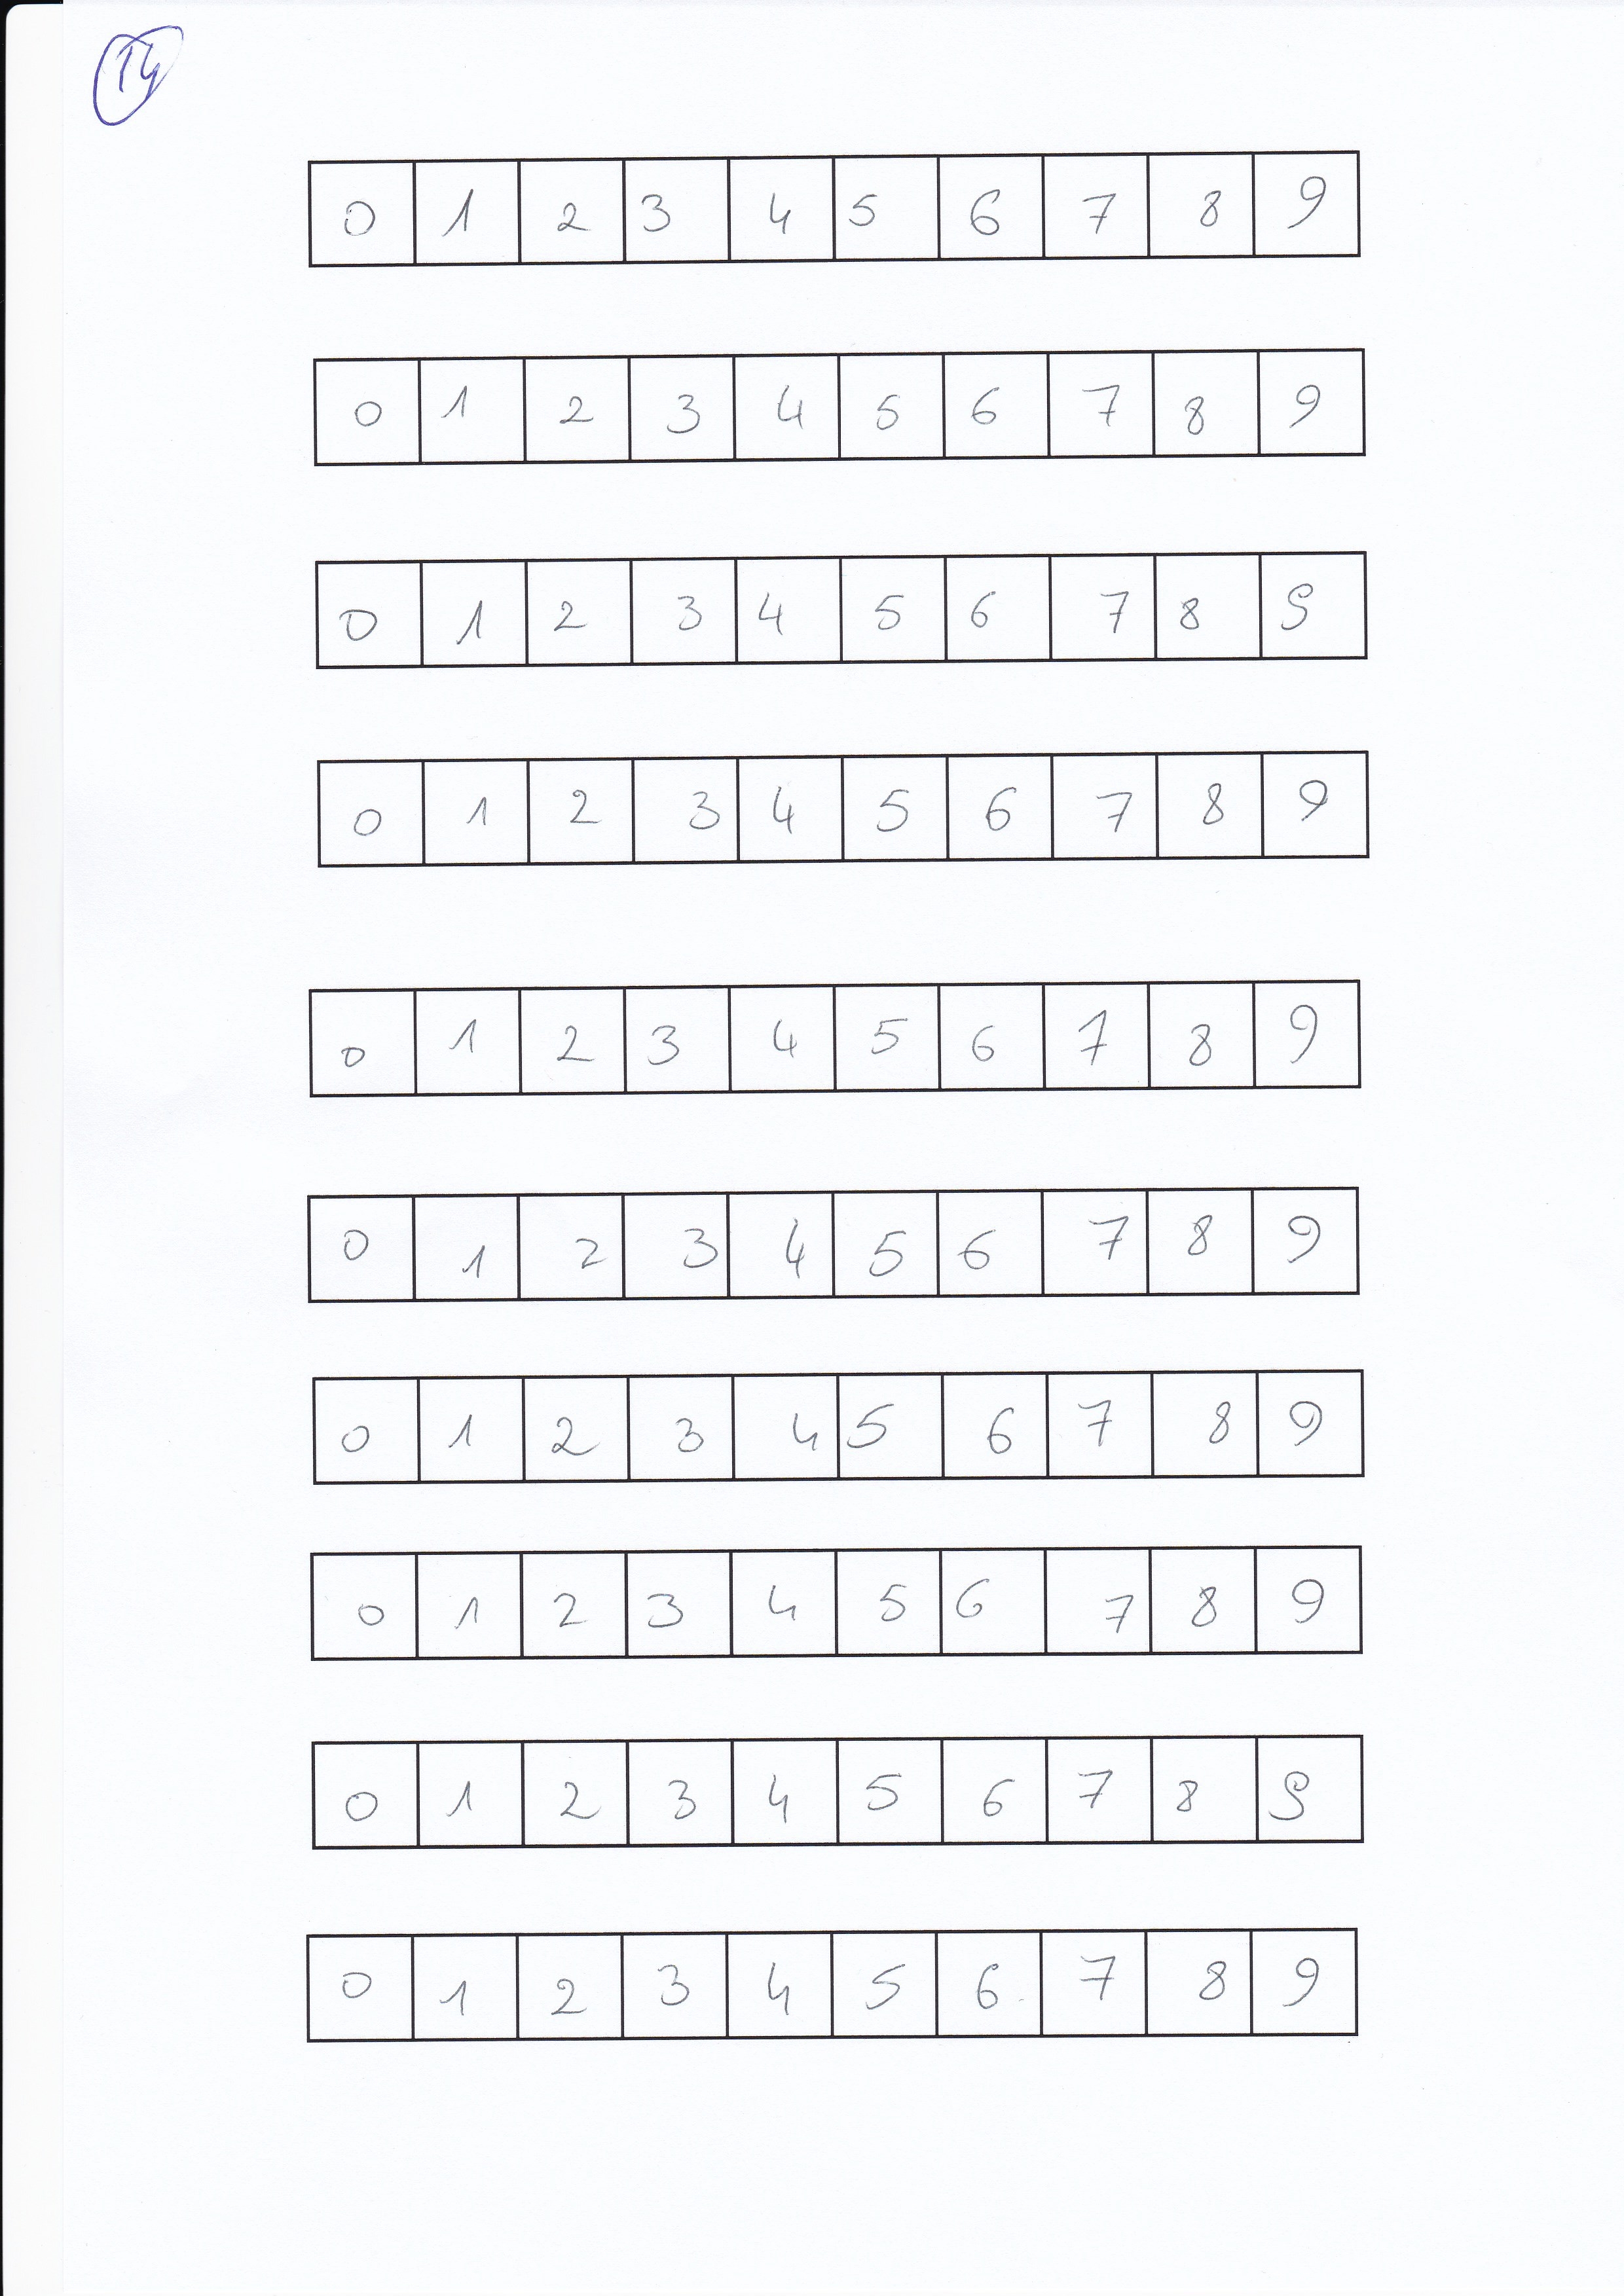 14
0 1 2 3 4 5 6 7 8 9
0 1 2 3 4 5 6 7 8 9
0 1 2 3 4 5 6 7 8 9
0 1 2 3 4 5 6 7 8 9
0 1 2 3 4 5 6 7 8 9
0 1 2 3 4 5 6 7 8 9
0 1 2 3 4 5 6 7 8 9
0 1 2 3 4 5 6 7 8 9
0 1 2 3 4 5 6 7 8 9
0 1 2 3 4 5 6 7 8 9